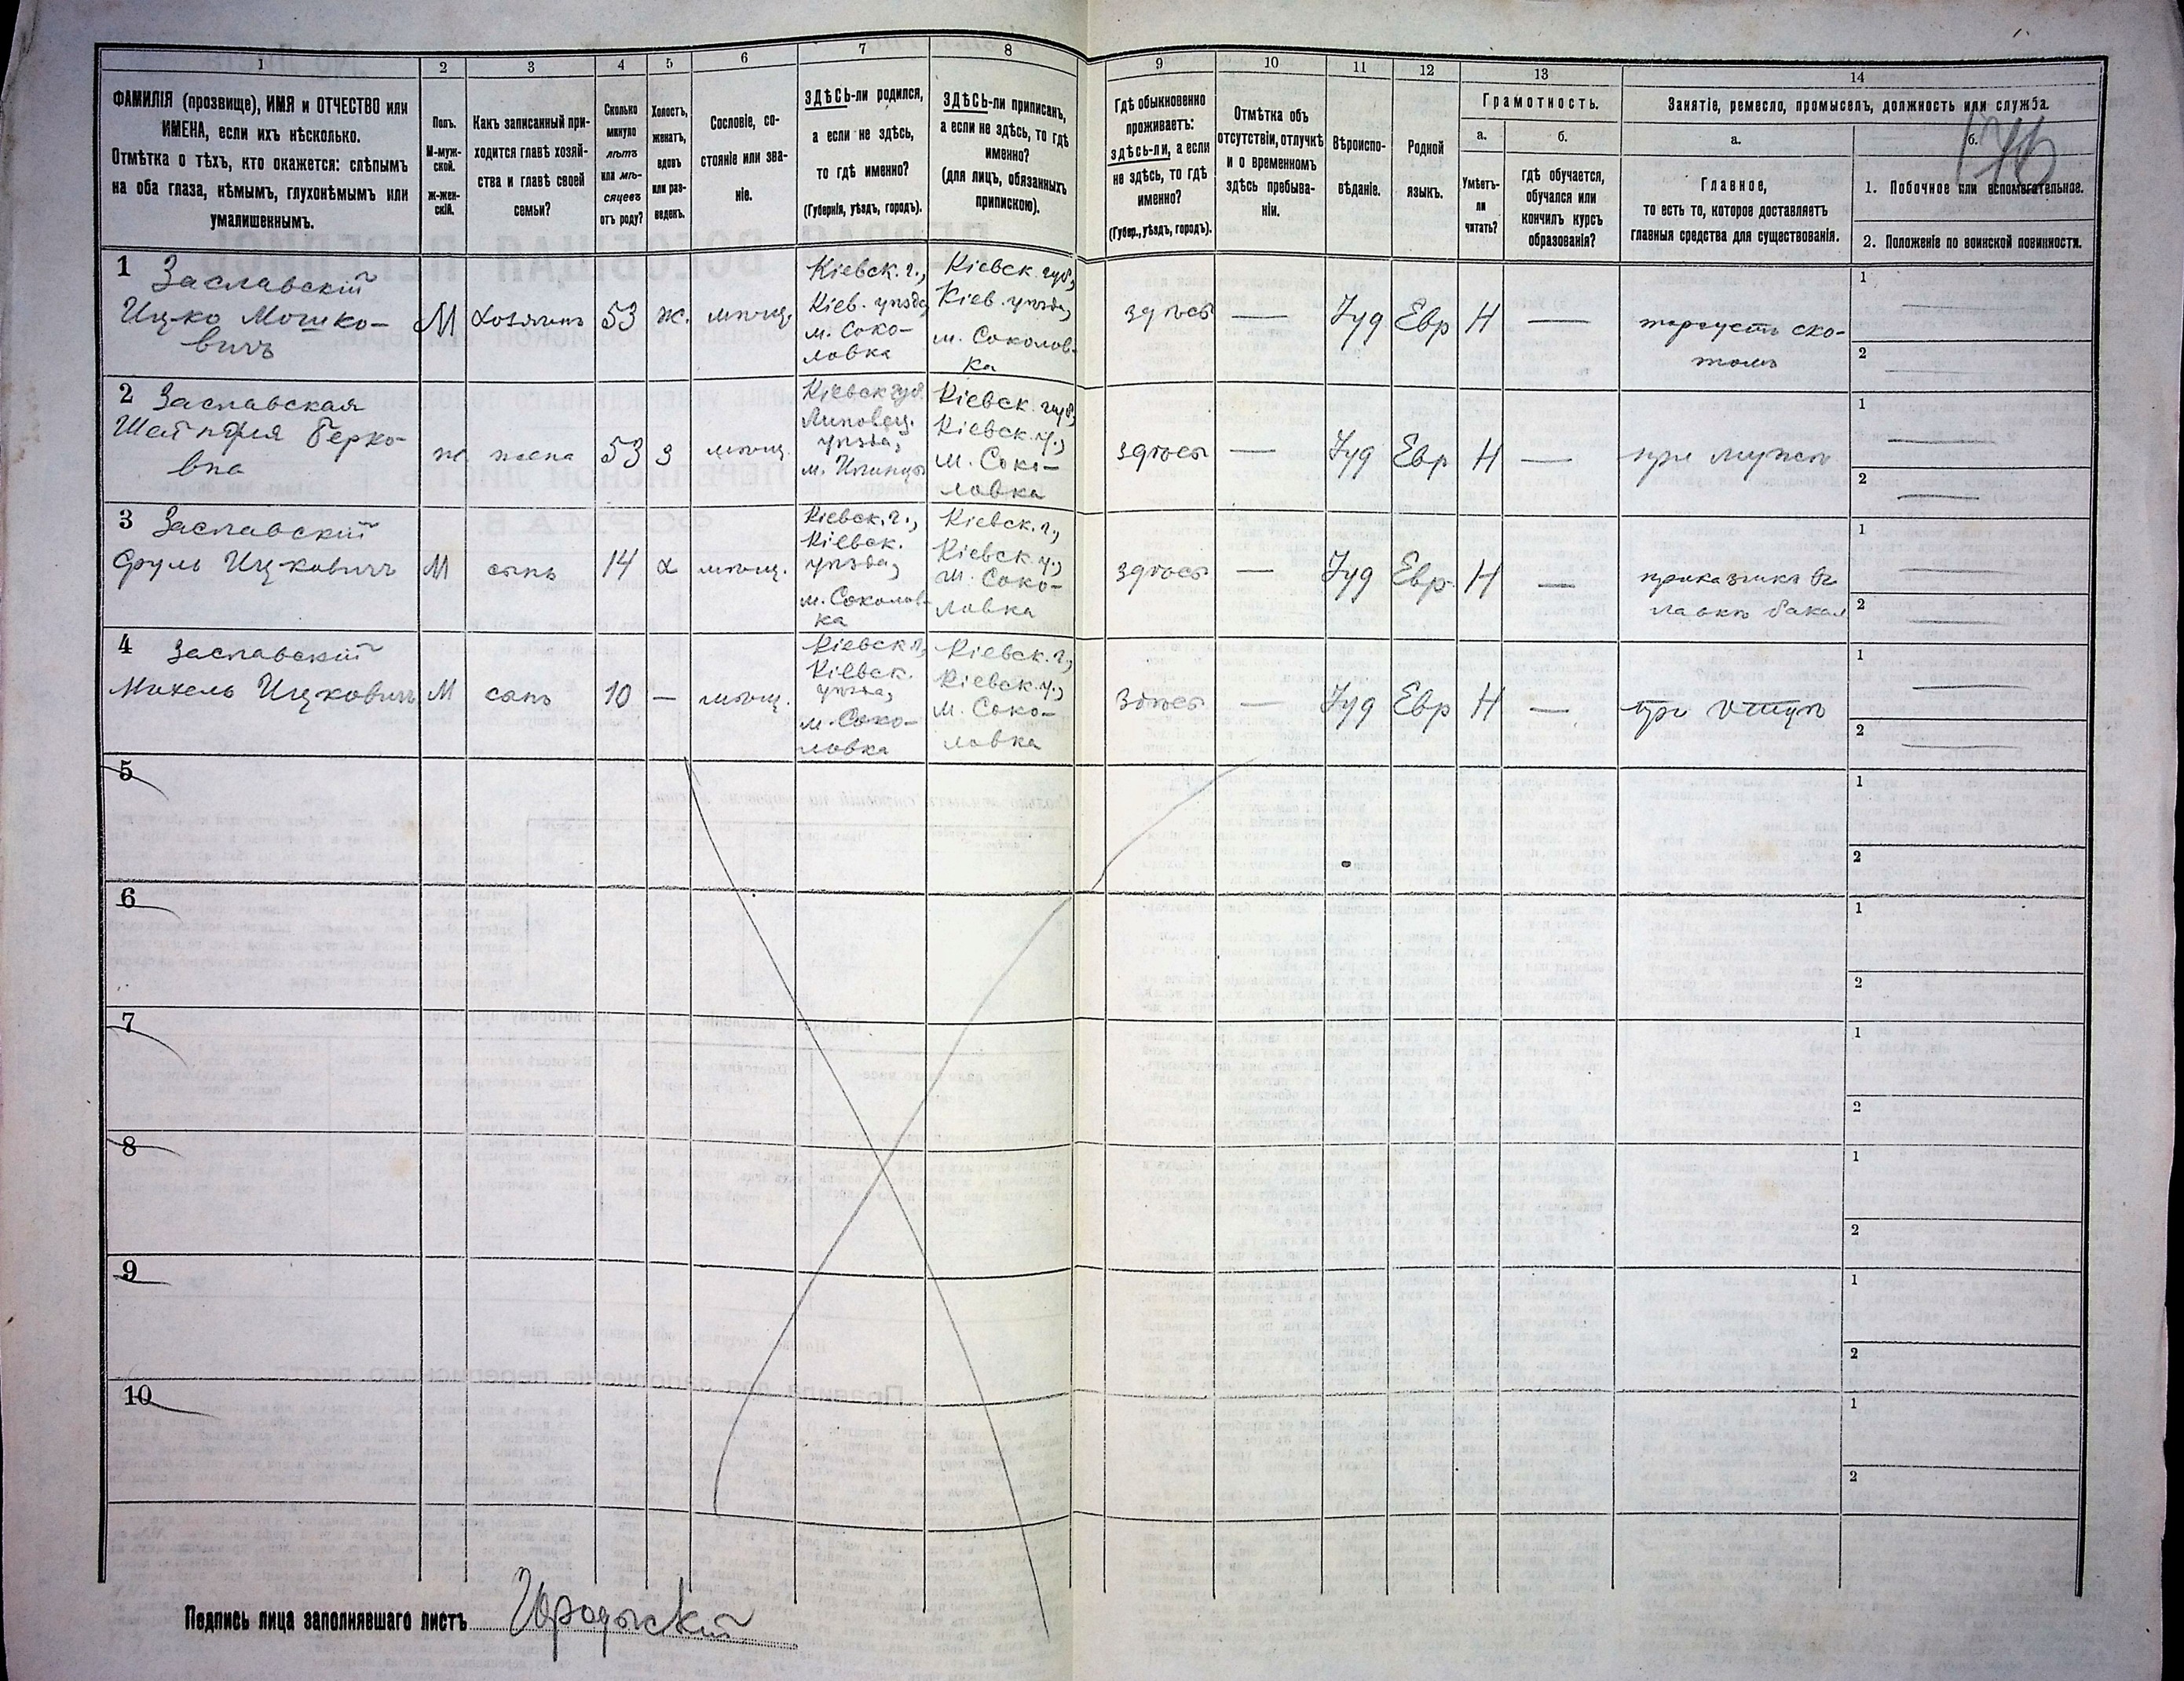 1
2
3
4
5
6
7
8
9
10
11
12
13
14
ФАМИЛІЯ (прозвище), ИМЯ и ОТЧЕСТВО или
ИМЕНА, если ихъ нѣсколько.
Отмѣтка о тѣхъ, кто окажется: слѣпымъ
на оба глаза, нѣмымъ, глухонѣмымъ или
умалишеннымъ.
Полъ.
М-муж-
ской.
ж-жен-
скій.
Какъ записанный при-
ходится главѣ хозяй-
ства и главѣ своей
семьи?
Сколько
минуло
лѣтъ
или мѣ-
сяцевъ
отъ роду?
Холостъ,
женатъ,
вдовъ
или раз-
веденъ.
Сословіе, со-
стояніе или зва-
ніе.
ЗДѢСЬ-ли родился,
а если не здѣсь,
то гдѣ именно?
(Губернія, уѣздъ, городъ).
ЗДѢСЬ-ли приписанъ,
а если не здѣсь, то гдѣ
именно?
(для лицъ, обязанныхъ
припискою).
Гдѣ обыкновенно
проживаетъ:
здѣсь-ли, а если
не здѣсь, то гдѣ
именно?
(Губер., уѣздъ, городъ).
Отмѣтка объ
отсутствіи, отлучкѣ
и о временномъ
здѣсь пребыва-
ніи.
Вѣроиспо-
вѣданіе.
Родной
языкъ.
Грамотность.
а.
б.
Умѣетъ-
ли
читать?
гдѣ обучается,
обучался или
кончилъ курсъ
образованія?
Занятіе, ремесло, промыселъ, должность или служба.
а.
б.
176
Главное,
то есть то, которое доставляетъ
главныя средства для существованія.
1. Побочное или вспомогательное.
2. Положеніе по воинской повинности.
1 Заславскій
Ицко Мошко-
вичъ
М
хозяинъ
53
ж.
мѣщ.
Кіевск. г.,
Кіев. уѣзда,
м. Соко-
ловка
Кіевск. губ.,
Кіев. уѣзда,
м. Соколов-
ка
здѣсь
—
Іуд
Евр
Н
—
торгуетъ ско-
томъ
1 —
2 —
2 Заславская
Берко-
вна
ж
жена
53
з
мѣщ.
Кіевск губ.
Липовец.
уѣзда,
м. Илинцы
Кіевск. губ.,
Кіевск. у.,
м. Соко-
ловка
здѣсь
—
Іуд
Евр
Н
—
при мужѣ
1 —
2 —
3 Заславскій
Сруль Ицковичъ
М
сынъ
14
х
мѣщ.
Кіевск. г.,
Кіевск.
уѣзда,
м. Соколов-
ка
Кіевск. г.,
Кіевск. у.,
м. Соко-
ловка
здѣсь
—
Іуд
Евр.
Н
—
приказчикъ въ
лавкѣ бакал
1 —
2 —
4 Заславскій
Михель Ицковичъ
М
сынъ
10
—
мѣщ.
Кіевск г.,
Кіевск.
уѣзда,
м. Соко-
ловка
Кіевск. г.,
Кіевск. у.,
м. Соко-
ловка
здѣсь
—
Іуд
Евр
Н
—
при отцѣ
1 —
2 —
5
1
2
6
1
2
7
1
2
8
1
2
9
1
2
10
1
2
Подпись лица заполнявшаго листъ